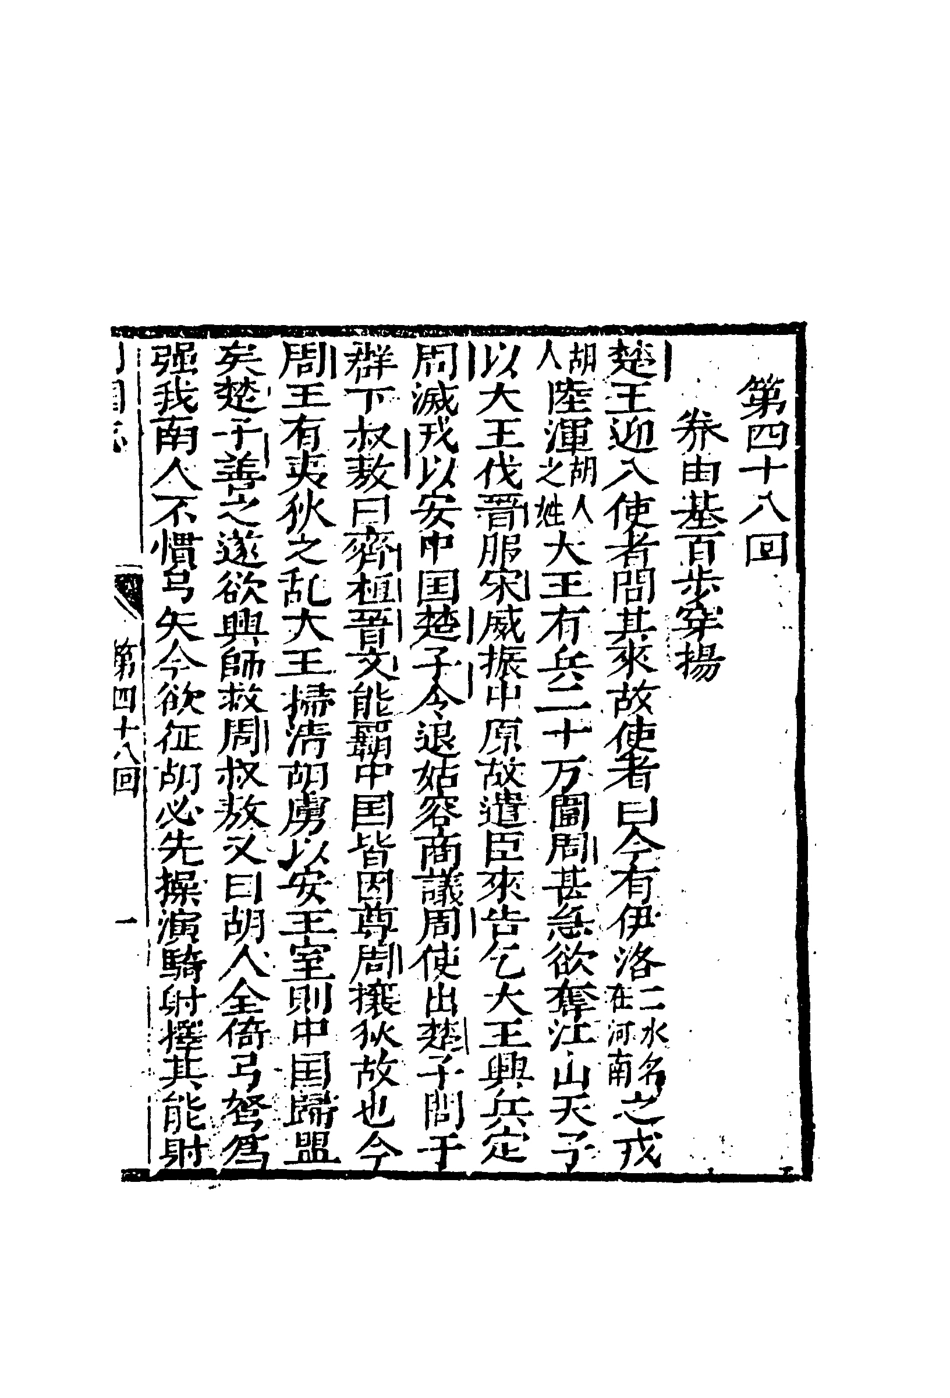 第四十八回
養由基百步穿揚
楚王迎入使者問其來故使者曰今有伊洛二水名在河南之戎
胡人陸渾胡人之姓大王有兵二十万圍周甚急欲奪江山天子
以大王伐晉服宋威振中原故遣臣來告乞大王興兵定
周滅戎以安中国楚子令退姑容商議周使出楚子問于
群下叔敖曰齊桓晉文能覇中国皆因尊周攘狄故也今
周王有夷狄之乱大王掃清胡虜以安王室則中国歸盟
矣楚子善之遂欲興師救周叔敖又曰胡人全倚弓弩為
强我南人不慣弓矢今欲征胡必先操演騎射擇其能射
列国志
第四十八回
一